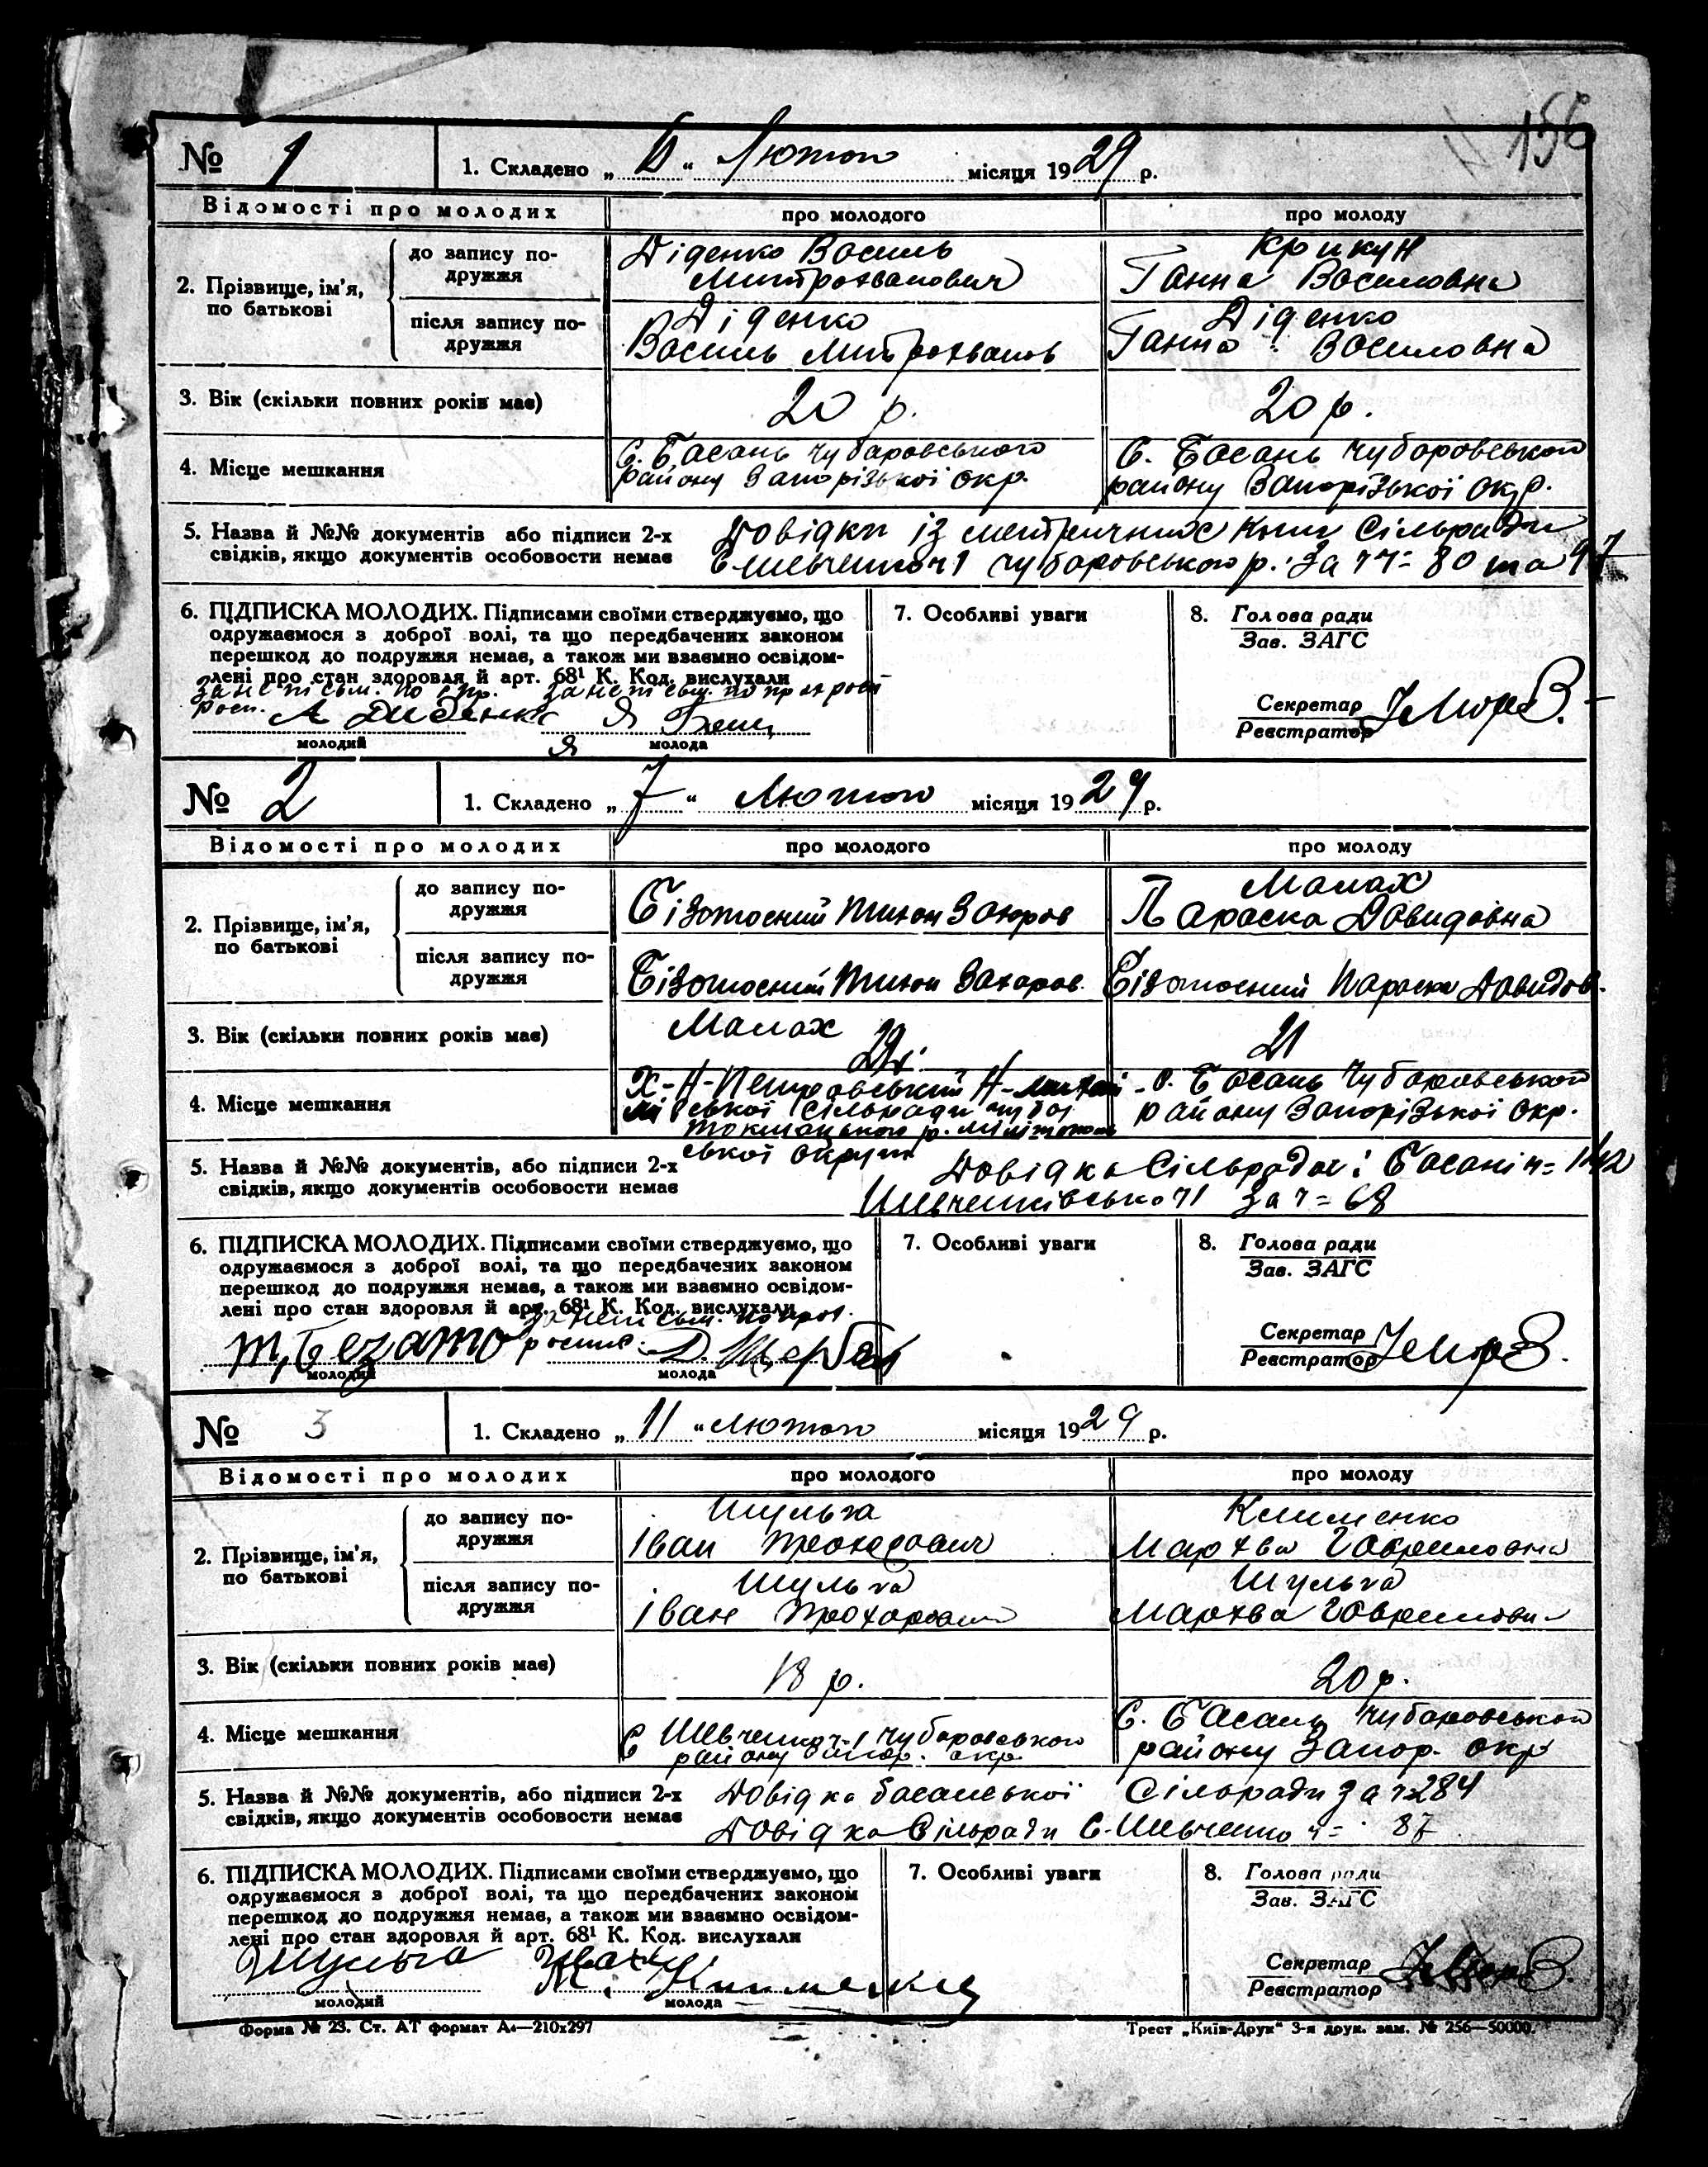 156
№ 1 1. Складено „ 6 “ Лютого місяця 1929 р.
Відомості про молодих про молодого про молоду
2. Прізвище, ім’я, по батькові
до запису по-
дружжя
Діденко Василь
Митрохванович
Крикун
Ганна Василовна
після запису по-
дружжя
Діденко
Василь Митрохванов
Діденко
Ганна Василовна
3. Вік (скільки повних років має) 20 р. 20 р.
4. Місце мешкання
С. Басань Чубаровського
району Запорізької Окр.
С. Басань Чубаровської
району Запорізької Окр.
5. Назва й №№ документів або підписи 2-х
свідків, якщо документів особовости немає
Довідки із метричних книг Сільради
Чубаровського р. За чч= 80 та 97
6. ПІДПИСКА МОЛОДИХ. Підписами своїми стверджуємо, що
одружаємося з доброї волі, та що передбачених законом
перешкод до подружжя немає, а також ми взаємно освідом-
лені про стан здоровля й арт. 68¹ К. Код. вислухали
молодий молода
7. Особливі уваги
8. Голова ради
Зав. ЗАГС
Секретар
Реєстратор
№ 2 1. Складено „ 7 “ Лютого місяця 1929 р.
Відомості про молодих про молодого про молоду
2. Прізвище, ім’я, по батькові
до запису по-
дружжя
Тихон Захаров
Малах
Параска Довидовна
після запису по-
дружжя
Тихон Захаров.
Параска Довидов.
3. Вік (скільки повних років має)
Малах
21
4. Місце мешкання
Х-Н-Петровський
ської Сільради
Токмацького р.
ської Округи
с. Басань Чубаровської
району Запорізької Окр.
5. Назва й №№ документів, або підписи 2-х
свідків, якщо документів особовости немає
Довідка Сільради Басані ч= 142
За ч= 68
6. ПІДПИСКА МОЛОДИХ. Підписами своїми стверджуємо, що
одружаємося з доброї волі, та що передбачених законом
перешкод до подружжя немає, а також ми взаємно освідом-
лені про стан здоровля й арт. 68¹ К. Код. вислухали
молодий молода
7. Особливі уваги
8. Голова ради
Зав. ЗАГС
Секретар
Реєстратор
№ 3 1. Складено „ 11 “ Лютого місяця 1929 р.
Відомості про молодих про молодого про молоду
2. Прізвище, ім’я, по батькові
до запису по-
дружжя
Шульга
Іван Прохорович
Клименко
Мархва Гавриловна
після запису по-
дружжя
Шульга
Іван Прохорович
Шульга
Мархва Гаврилови
3. Вік (скільки повних років має) 18 р. 20 р.
4. Місце мешкання
С Шевченко ч1 Чубаровського
району Запор. окр
С. Басань Чубаровської
району Запор. окр
5. Назва й №№ документів, або підписи 2-х
свідків, якщо документів особовости немає
Довідка басанської Сільради за ч=284
Довідка Сільради С. Шевченко ч= 87
6. ПІДПИСКА МОЛОДИХ. Підписами своїми стверджуємо, що
одружаємося з доброї волі, та що передбачених законом
перешкод до подружжя немає, а також ми взаємно освідом-
лені про стан здоровля й арт. 68¹ К. Код. вислухали
Шульга
М. Клименко
молодий молода
7. Особливі уваги
8. Голова ради
Зав. ЗАГС
Секретар
Реєстратор
Форма № 23. Ст. АТ формат А₄—210x297
Трест „Київ-Друк“ 3-я друк. зам. № 256—50000.